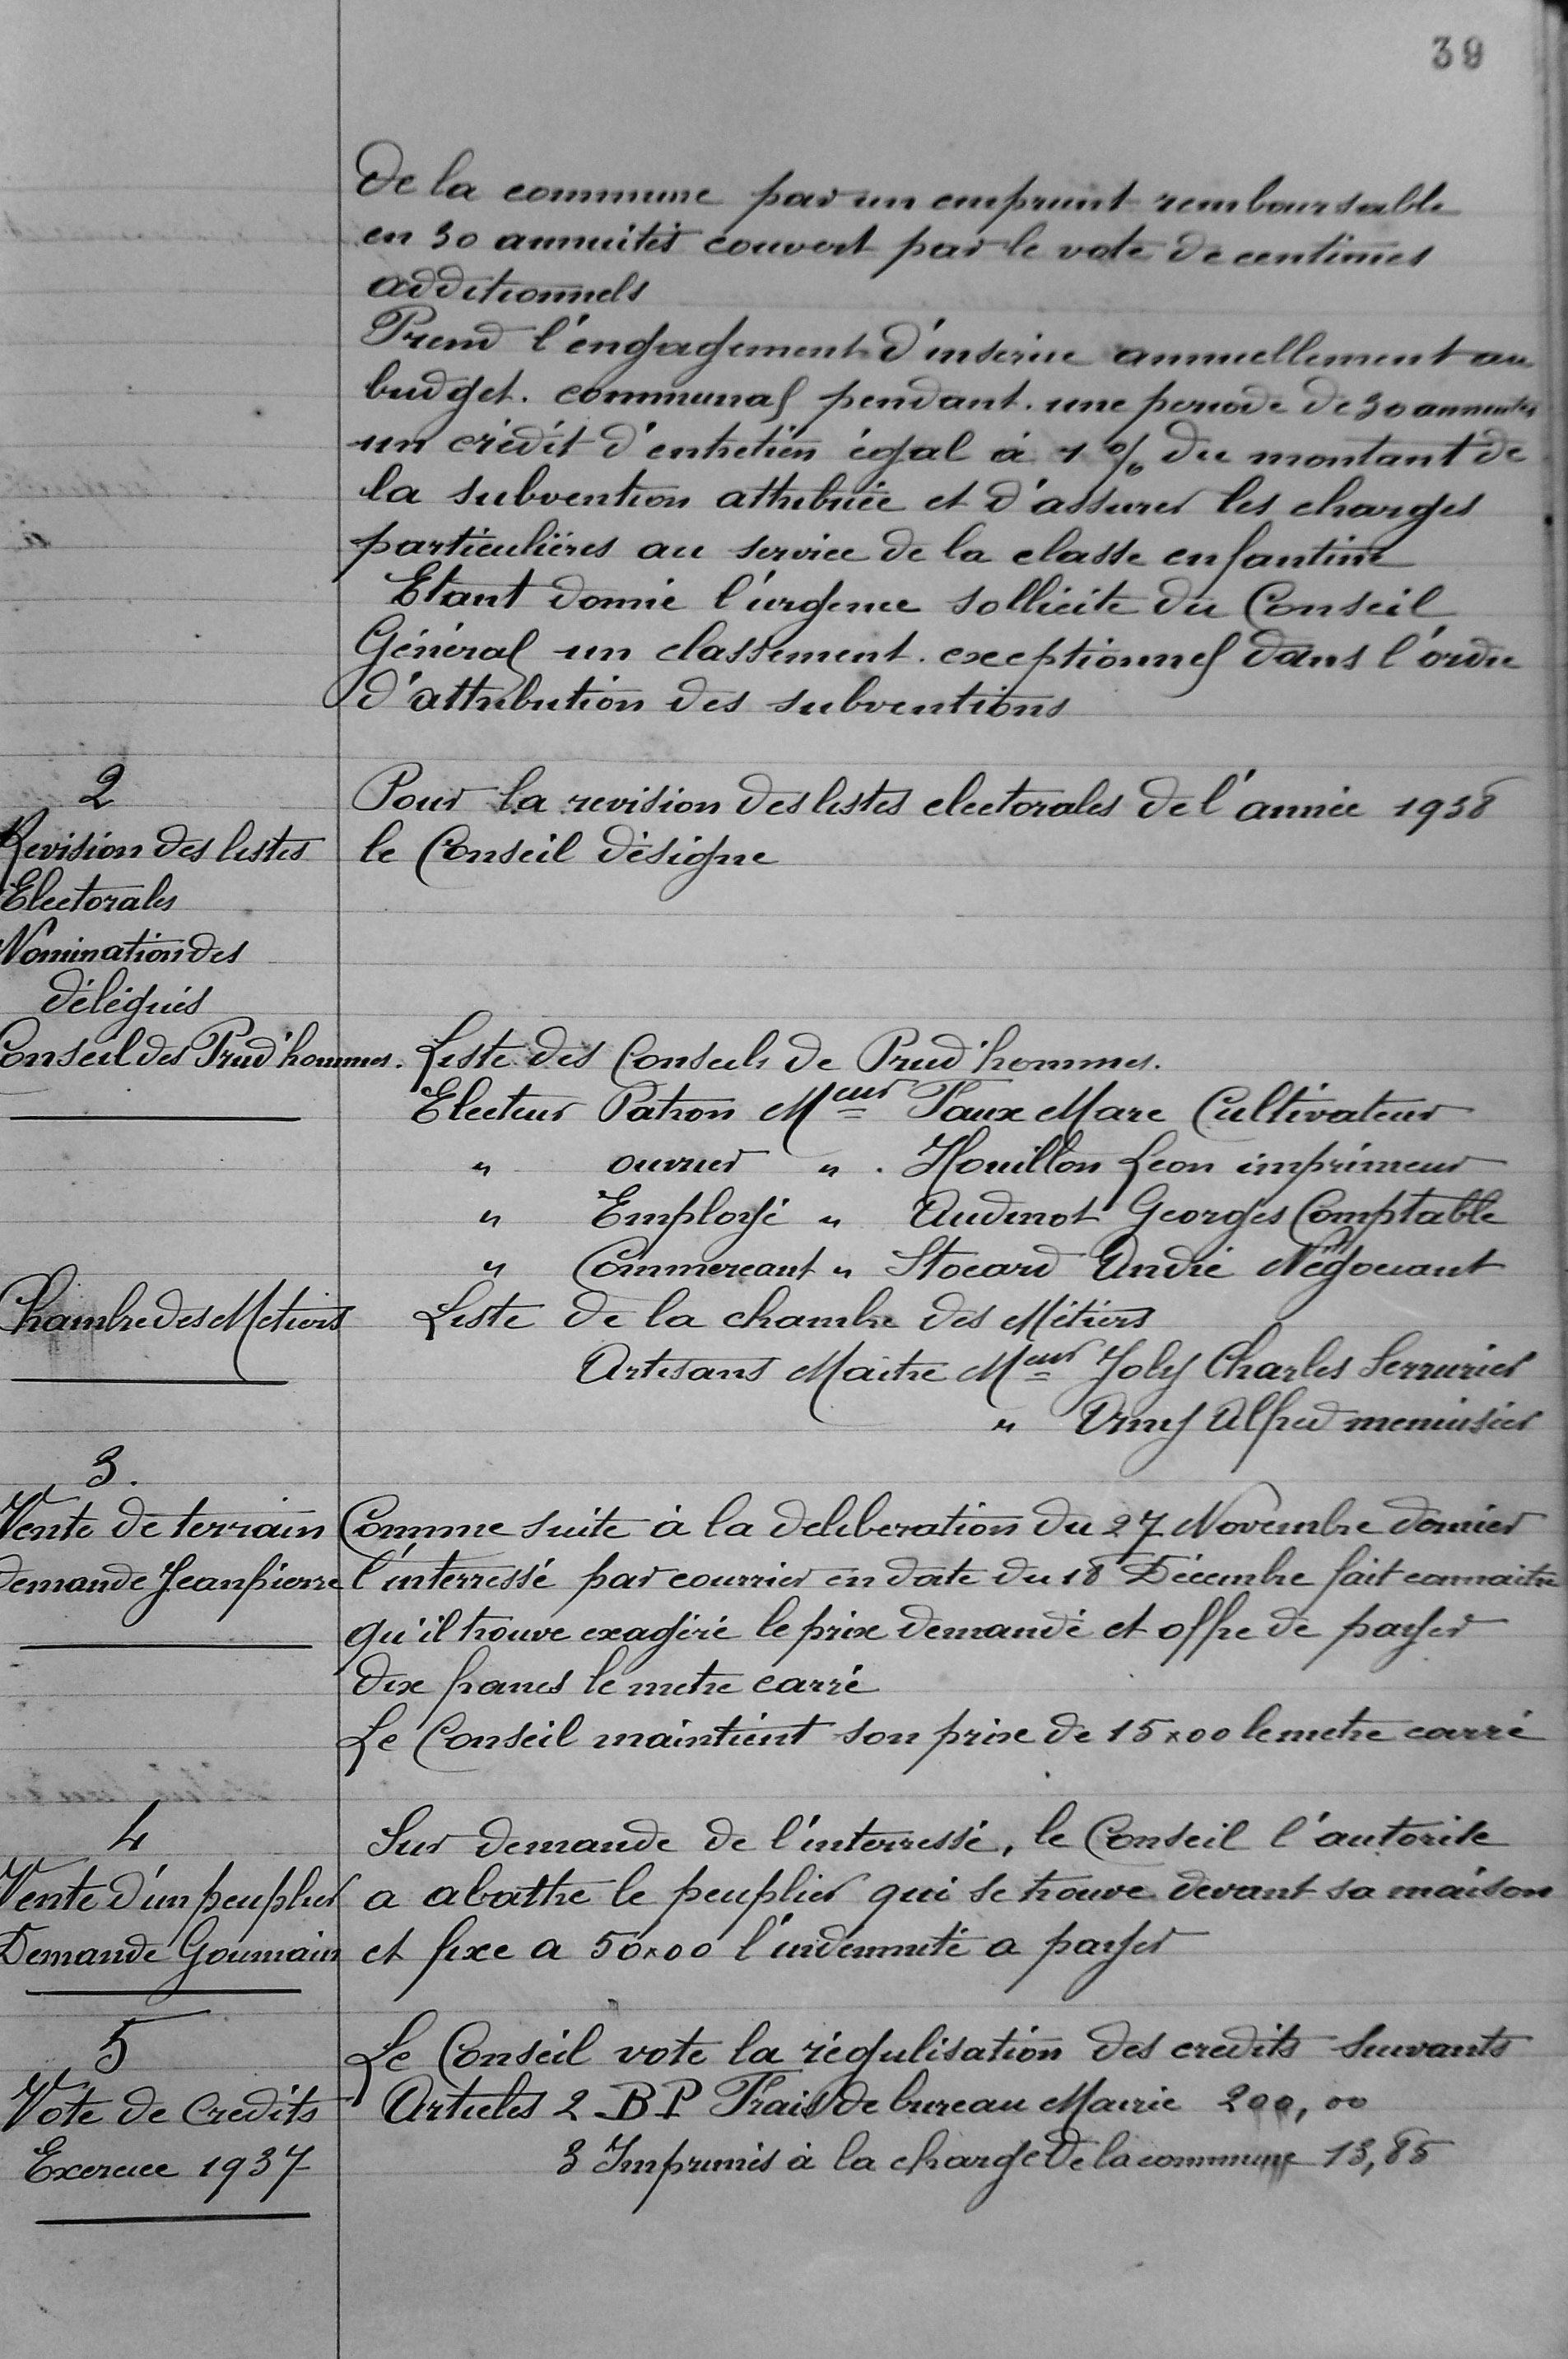 39
De la commune par un emprunt remboursable
en 30 annuités couvert par le vote de centimes
additionnels
Prend l'engagement d'inscrire annuellement au
budget. communal pendant. une periode de 30 annuités
un crédit d'entretien égal à 1 % du montant de
la subvention attribuée et d'assurer les charges
particulières au service de la classe enfantine
Etant donné l'urgence sollicite du Conseil
Général un classement. exceptionnel dans l'ordre
d'attribution des subventions
2
Revision des listes
Electorales
Nomination des
délégués
Pour la revision des listes electorales de l'année 1938
le Conseil désigne
Conseil des Prud'hommes.
Liste des Conseils de Prud'hommes.
Electeur Patron Meur Faux Marc Cultivateur
" ouvrier " . Houillon Leon imprimeur
" Employé " Audinot Georges Comptable
" Commercant " Stocard André Négociant
Chambre des Metiers
Liste de la chambre des Métiers
Artisans Maitre Meur Joly Charles Serrurier
" Alfred menuisier
3.
Vente de terrain
Demande Jeanpierre
Comme suite à la deliberation du 27 Novembre dernier
l'interressé par courrier en date du 18 Décembre fait connaitre
qu'il trouve exagéré le prix demandé et offre de payer
dix francs le metre carré
Le Conseil maintient son prix de 15x00 le metre carré
4
Vente d'un peuplier
Demande Goumain
Sur demande de l'interressé, le Conseil l'autorise
a abattre le peuplier qui se trouve devant sa maison
et fixe a 50x00 l'indemnité a payer
5
Vote de Credits
Exercice 1937
Le Conseil vote la régulisation des credits suivants
Articles 2 BP Frais de bureau Mairie 200,00
3 Imprimés à la charge de la commune 13,85